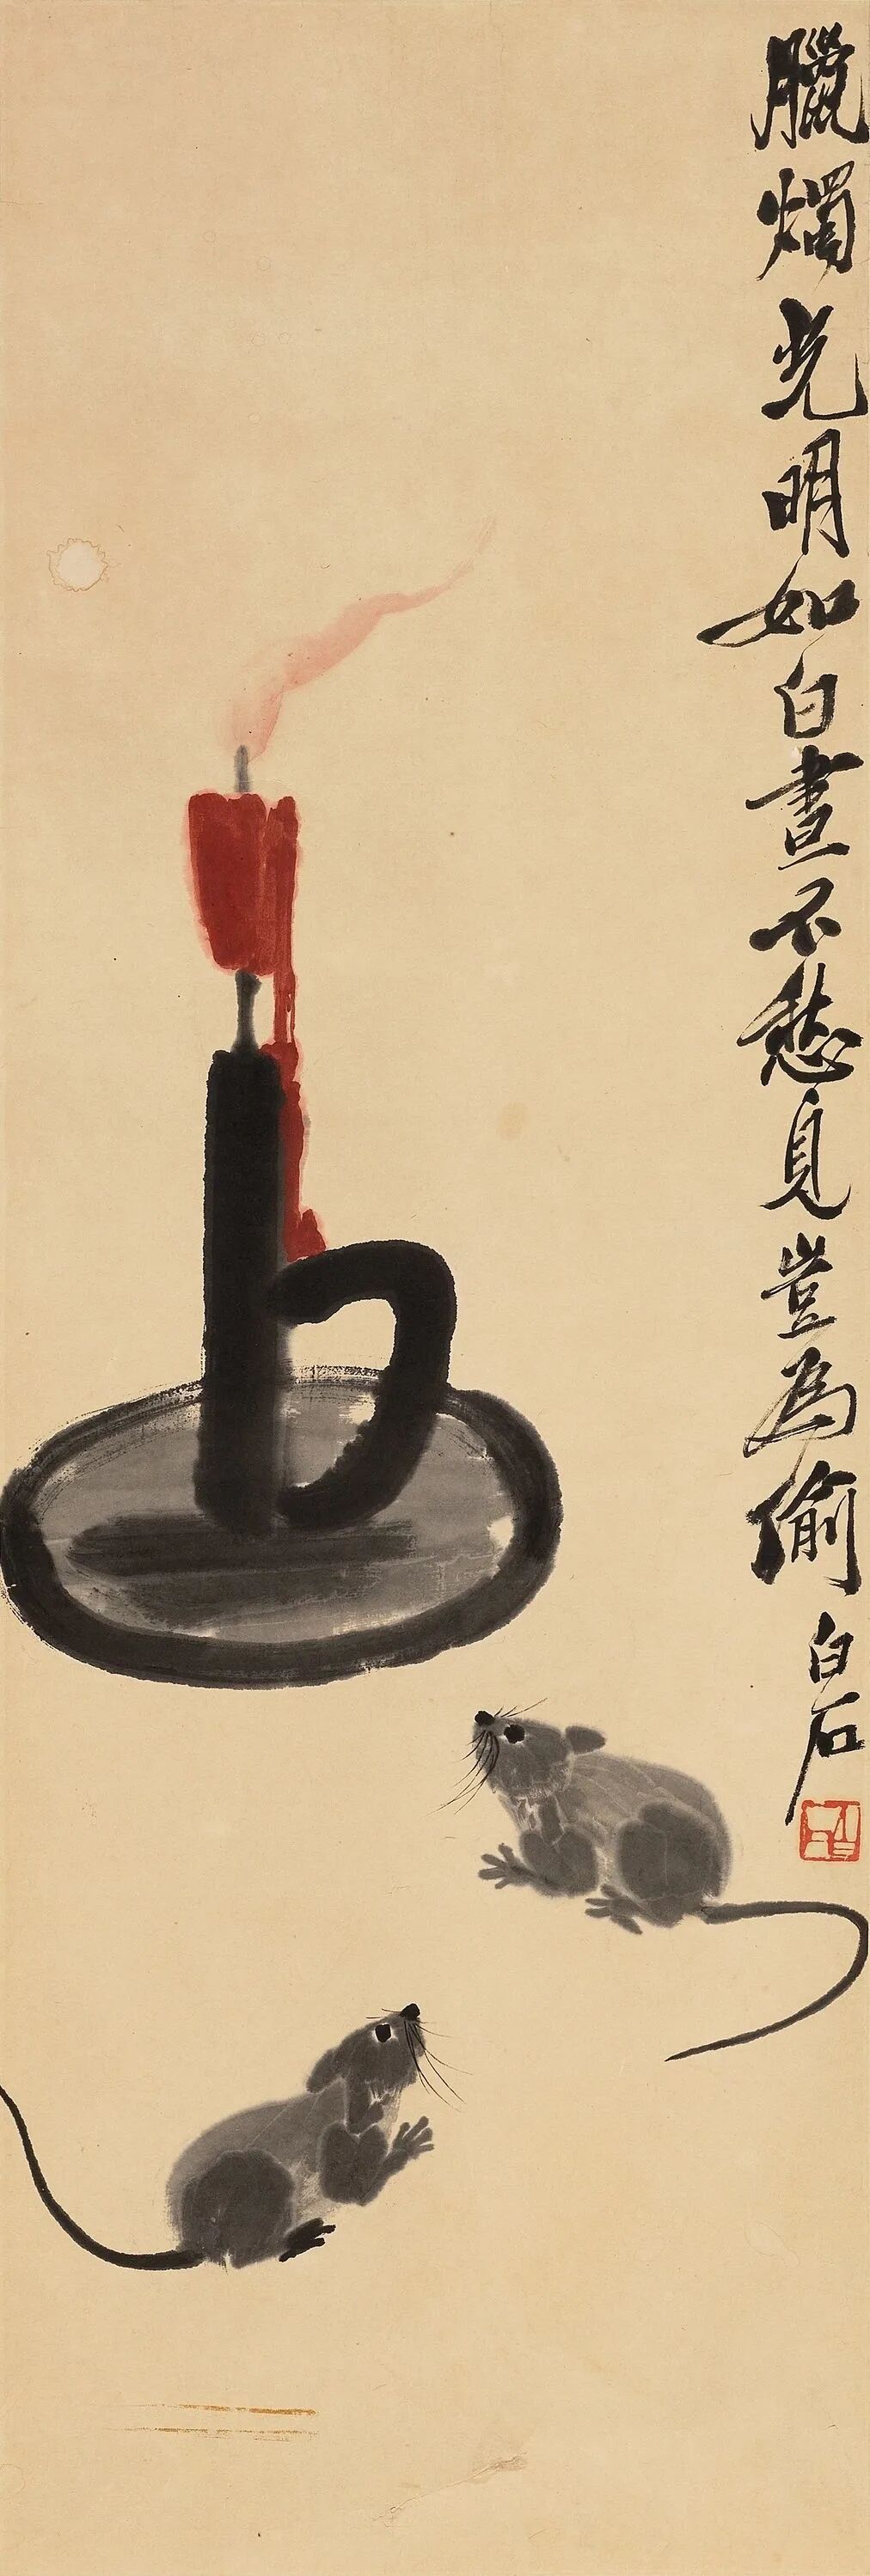 臘燭光明如白晝不愁見豈為偷
白石